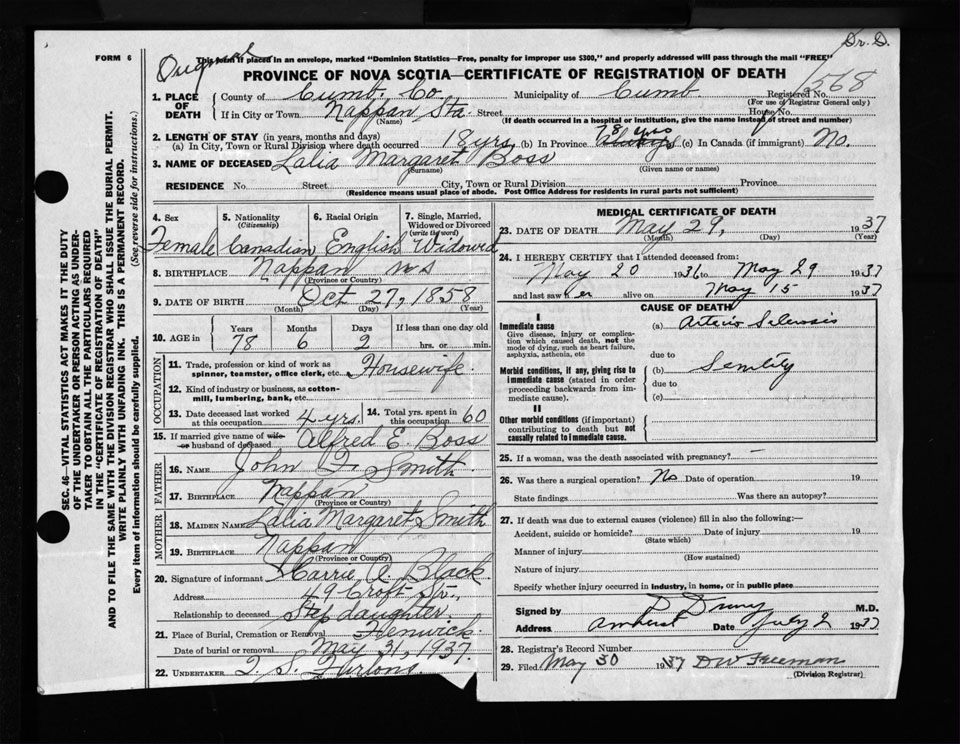 Dr. D.
FORM 6
Original
This form if placed in an envelope, marked "Dominion Statistics—Free, penalty for improper use $300," and properly addressed will pass through the mail "FREE"
PROVINCE OF NOVA SCOTIA—CERTIFICATE OF REGISTRATION OF DEATH
1568
1. PLACE OF DEATH
County of Cumb. Co. Municipality of Cumb. Registered No.
(For use of Registrar General only)
If in City or Town Nappan Sta. Street House No.
(Name) (If death occurred in a hospital or institution, give the name instead of street and number)
2. LENGTH OF STAY (in years, months and days)
78 yrs
(a) In City, Town or Rural Division where death occurred 18 yrs, (b) In Province (c) In Canada (if immigrant) No.
3. NAME OF DECEASED Lalia Margaret Boss
(Surname) (Given name or names)
RESIDENCE No. Street City, Town or Rural Division Province
(Residence means usual place of abode. Post Office Address for residents in rural parts not sufficient)
SEC. 46—VITAL STATISTICS ACT MAKES IT THE DUTY
OF THE UNDERTAKER OR PERSON ACTING AS UNDER-
TAKER TO OBTAIN ALL THE PARTICULARS REQUIRED
IN THE "CERTIFICATE OF REGISTRATION OF DEATH"
AND TO FILE THE SAME WITH THE DIVISION REGISTRAR WHO SHALL ISSUE THE BURIAL PERMIT.
WRITE PLAINLY WITH UNFADING INK. THIS IS A PERMANENT RECORD.
Every item of information should be carefully supplied. (See reverse side for instructions.)
4. Sex 5. Nationality (Citizenship) 6. Racial Origin 7. Single, Married, Widowed or Divorced (write the word)
Female Canadian English Widowed
8. BIRTHPLACE Nappan N S
(Province or Country)
9. DATE OF BIRTH Oct 27, 1858
(Month) (Day) (Year)
10. AGE in Years Months Days If less than one day old
78 6 2 hrs. or min.
OCCUPATION
11. Trade, profession or kind of work as spinner, teamster, office clerk, etc. Housewife
12. Kind of industry or business, as cotton-mill, lumbering, bank, etc.
13. Date deceased last worked at this occupation 4 yrs. 14. Total yrs. spent in this occupation 60
15. If married give name of wife or husband of deceased Alfred E. Boss
FATHER
16. NAME John Smith
17. BIRTHPLACE Nappan
(Province or Country)
MOTHER
18. MAIDEN NAME Lalia Margaret Smith
19. BIRTHPLACE Nappan
(Province or Country)
20. Signature of informant Carrie A. Black
Address 49 Croft St.,
Relationship to deceased Step daughter
21. Place of Burial, Cremation or Removal Fenwick
Date of burial or removal May 31, 1937.
22. UNDERTAKER
MEDICAL CERTIFICATE OF DEATH
23. DATE OF DEATH May 29, 1937
(Month) (Day) (Year)
24. I HEREBY CERTIFY that I attended deceased from:
May 20 1936 to May 29 1937
and last saw her alive on May 15 1937
CAUSE OF DEATH
I
Immediate cause
Give disease, injury or complication which caused death, not the mode of dying, such as heart failure, asphyxia, asthenia, etc
(a) Arterio Sclerosis
due to
Morbid conditions, if any, giving rise to immediate cause (stated in order proceeding backwards from immediate cause).
(b) Senility
due to
(c)
II
Other morbid conditions (if important) contributing to death but not causally related to immediate cause.
25. If a woman, was the death associated with pregnancy? —
26. Was there a surgical operation? No Date of operation 19
State findings Was there an autopsy?
27. If death was due to external causes (violence) fill in also the following:—
Accident, suicide or homicide? Date of injury 19
(State which)
Manner of injury
(How sustained)
Nature of injury
Specify whether injury occurred in industry, in home, or in public place
Signed by D Drury M.D.
Address Amherst Date July 2 1937
28. Registrar's Record Number
29. Filed May 30 1937 DW Freeman
(Division Registrar)